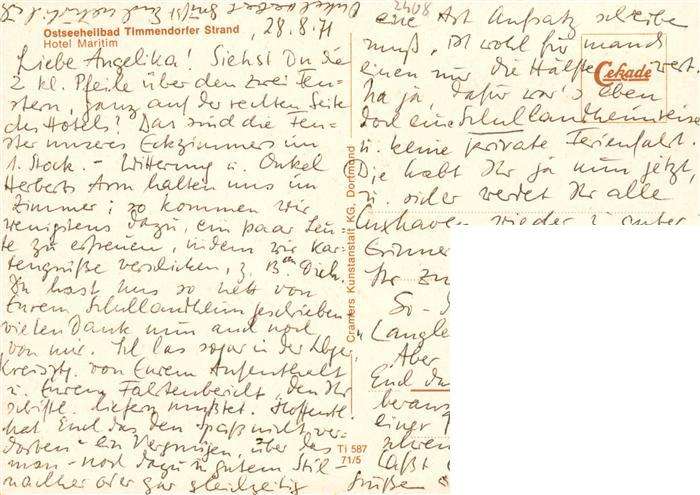 Ostseeheilbad Timmendorfer Strand
Hotel Maritim
28.8.71
Liebe Angelika! Siehst Du die
2 kl. Pfeile über den zwei Fen-
stern, ganz auf der rechten Seite
des Hotels? Das sind die Fen-
ster unseres Eckzimmers im
1. Stock. - Witterung u. Onkel
Herberts Arm halten uns im
Zimmer; so kommen wir
wenigstens dazu, ein paar Leu-
te zu erfreuen, indem wir Kar-
tengrüße verschicken, z. B. an Dich.
Du hast uns so nett von
Eurem Schullandheim geschrieben
vielen Dank nun auch noch
von mir. Ich las sogar in der
Kreisztg. von Eurem Aufenthalt
u. Eurem Faltenbericht, den Ihr
schriftl. liefern mußtet. Hoffentl.
hat Euch das den Spaß nicht ver-
dorben - ein Vergnügen, über das
man - noch dazu in gutem Stil -
nachher oder gar gleichzeitig
eine Art Aufsatz schreiben
muß, ist wohl für manch
einen nur die Hälfte wert.
Na ja, dafür war's eben
doch eine Schullandheimreise
u. keine private Ferienfahrt.
Die habt Ihr ja nun jetzt,
u. sicher werdet Ihr alle
Cuxhaven wieder in guter
Erinner
Ihr zu
So -
Langle
Aber
End da
heraus
einer
schwer
Laßt
Grüßen
Cekade
Cramers Kunstanstalt KG, Dortmund
Ti 587
71/5